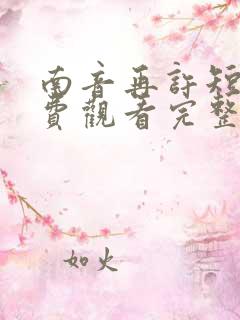 南音再許短
費觀看完整
如火